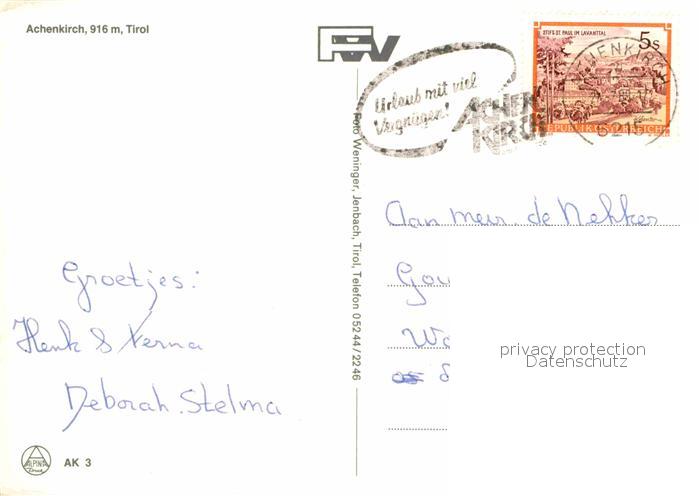 Achenkirch, 916 m, Tirol
Urlaub mit viel
Vergnügen!
ACHEN
KIRCH
STIFT ST. PAUL IM LAVANTTAL
5s
REPUBLIK ÖSTERREICH
ACHENKIRCH
6215
Foto Weninger, Jenbach, Tirol, Telefon 05244/2246
Groetjes:
Henk & Verna
Deborah. Stelma
Aan mevr. de Nekker
Gou
privacy protection
Datenschutz
ALPINA
Druck
AK 3